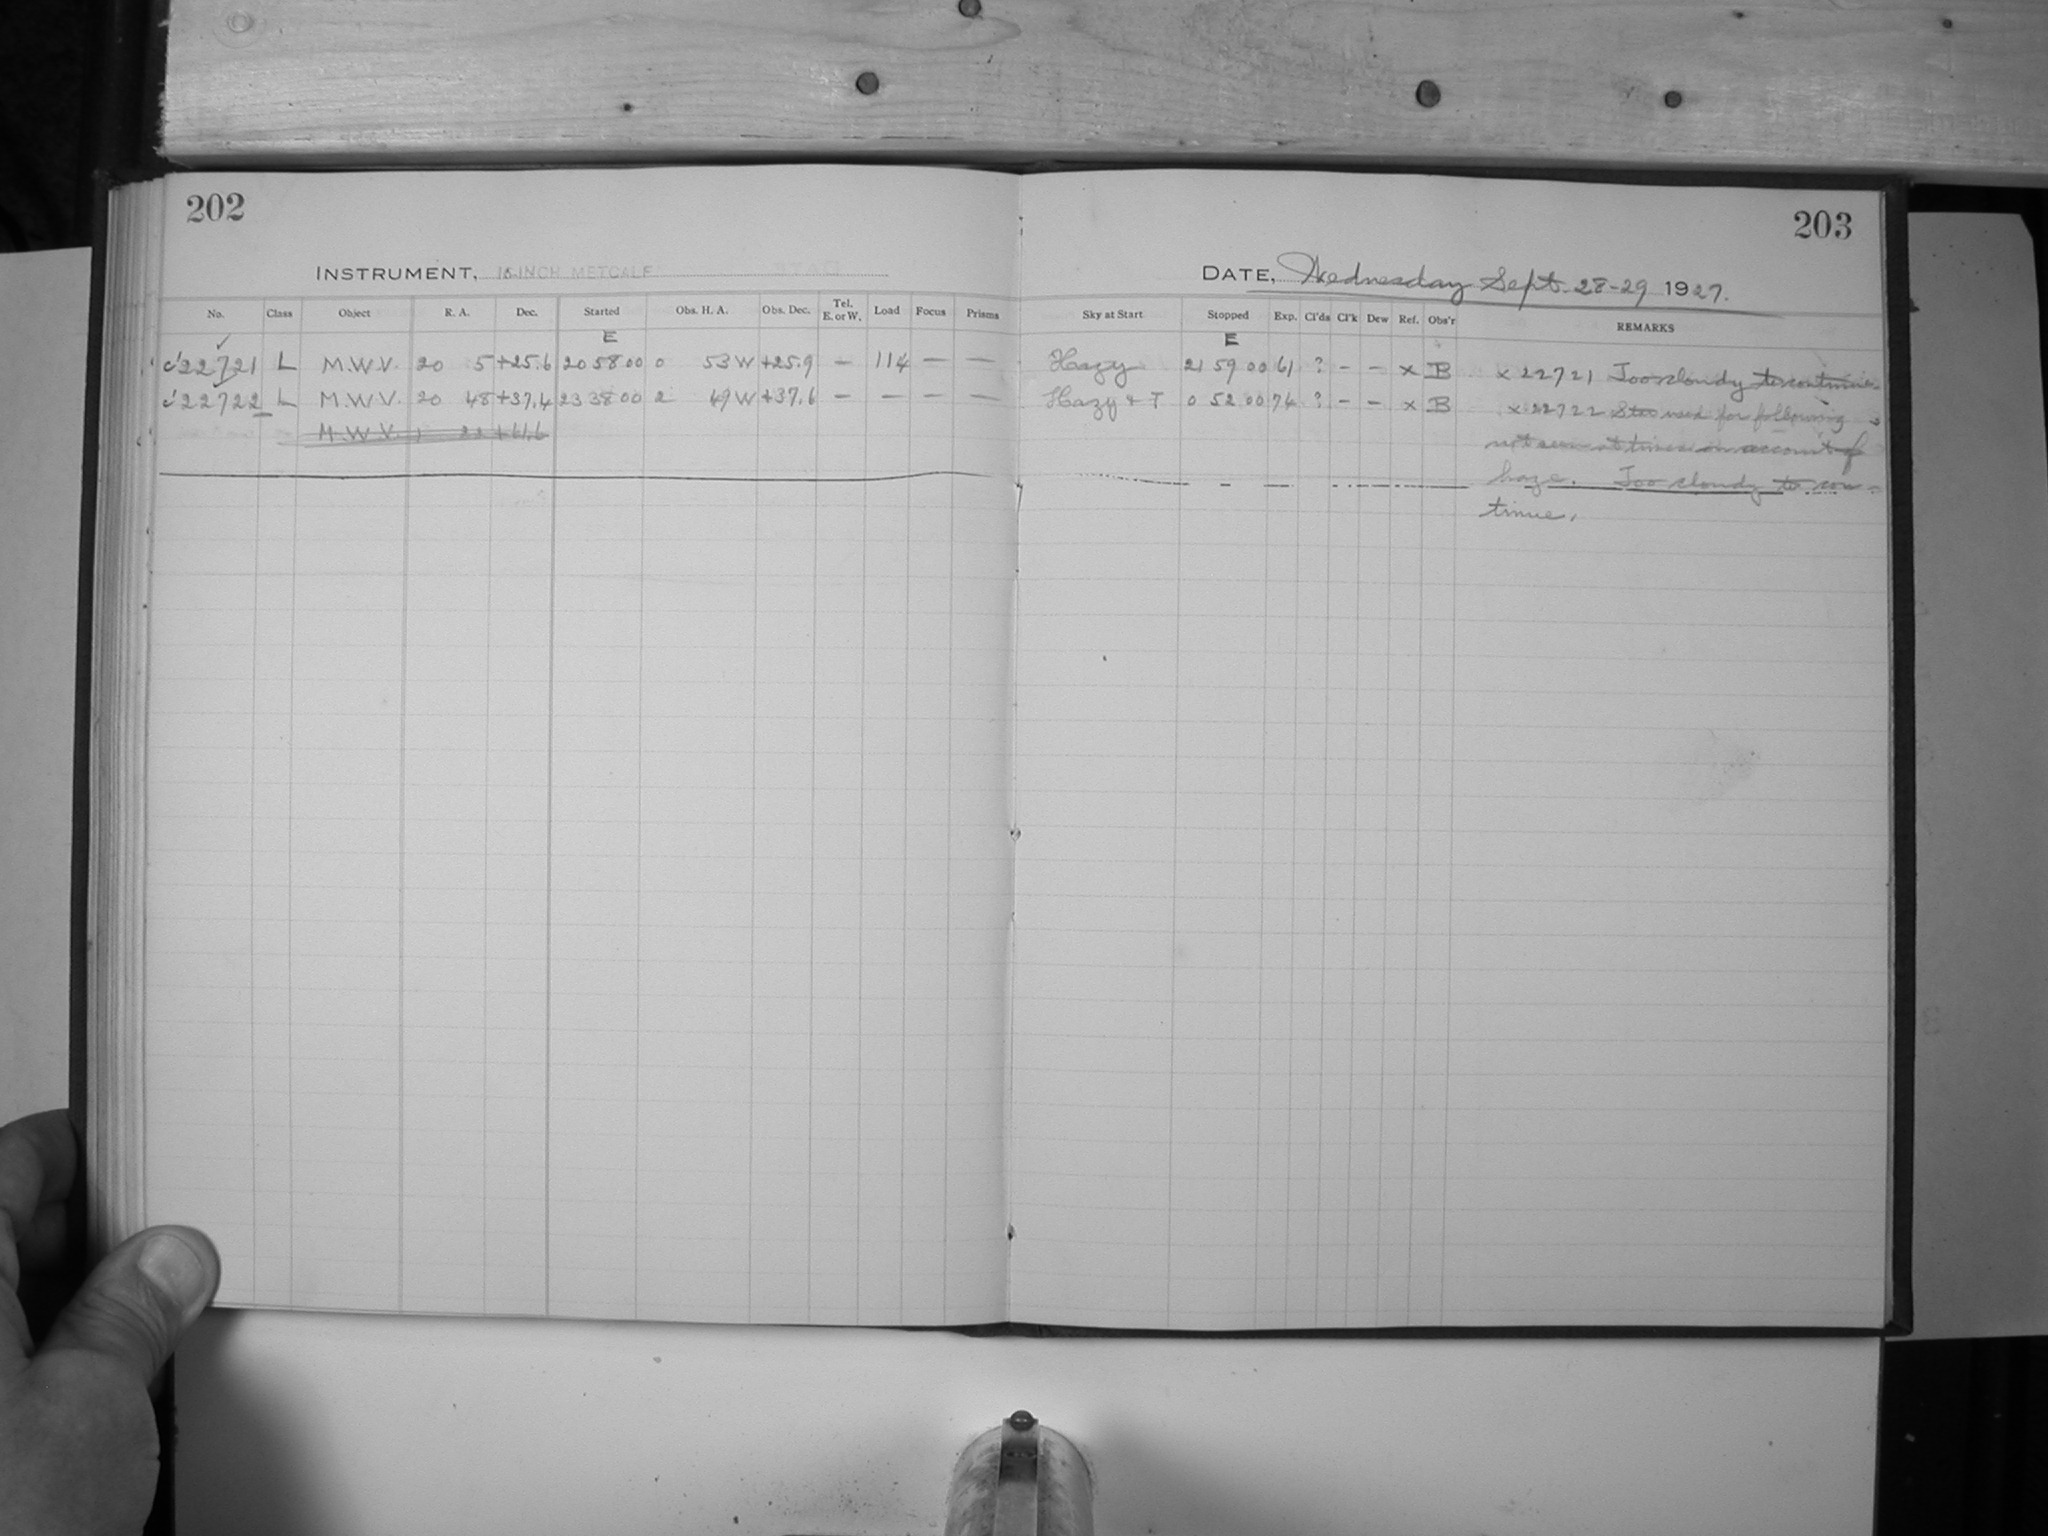 202
203
INSTRUMENT, 16 INCH METCALF
DATE, Wednesday Sept. 28-29 1927.
No. Class Object R. A. Dec. Started Obs. H. A. Obs. Dec. Tel. E. or W. Load Focus Prisms Sky at Start Stopped Exp. Cl'ds Cl'k Dew Ref. Obs'r REMARKS
E E
22721 L M.W.V. 20 5 +25.6 20 58 00 0 53 W +25.9 — 114 — — Hazy 21 59 00 61 ? – – x B x 22721 Too cloudy to continue.
22722 L M.W.V. 20 48 +37.4 23 38 00 2 49 W +37.6 — — — — Hazy + F 0 52 00 74 ? – – x B x 22722 Star used for following
M.W.V. 1 22 +61.6 not seen at times on account of
haze. Too cloudy to con-
tinue.